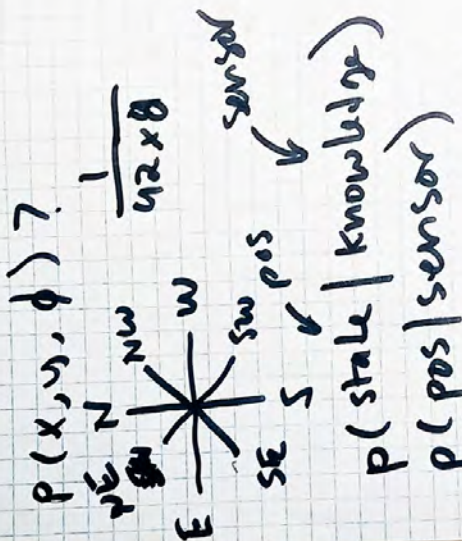 P(x, y, ϕ)?
1
42 x 8
N
NE
NW
E
W
SE
SW
S
pos
sensor
p(state | knowledge)
p(pos | sensor)